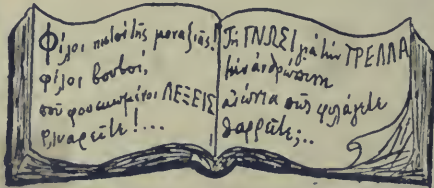 Φίλοι πιστοί τῆς μοναξιᾶς!
φίλοι βουβοί,
ποῦ φουσκωμένοι ΛΕΞΕΙΣ
βλναρεῖτε!...
Τὴ ΓΝΩΣΙ γιὰ τὴν ΤΡΕΛΛΑ
τὴν ἀνθρώπινη
αἰώνια πῶς φυλάγετε
θαρρεῖτε;..